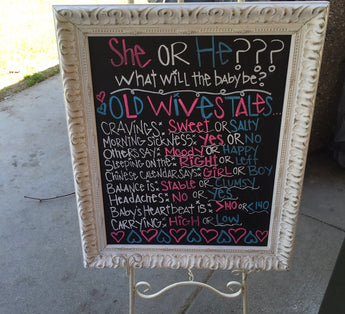 She OR He???
What will the baby be?
OLD WIVES TALES...
CRAVINGS: SWEET OR SALTY
MORNING SICKNESS: YES OR NO
OTHERS SAY: MOODY OR HAPPY
SLEEPING ON THE: RIGHT OR LEFT
CHINESE CALENDAR SAYS: GIRL OR BOY
BALANCE IS: STABLE OR CLUMSY
HEADACHES: NO OR YES
BABY'S HEARTBEAT IS: >140 OR <140
CARRYING: HIGH OR LOW